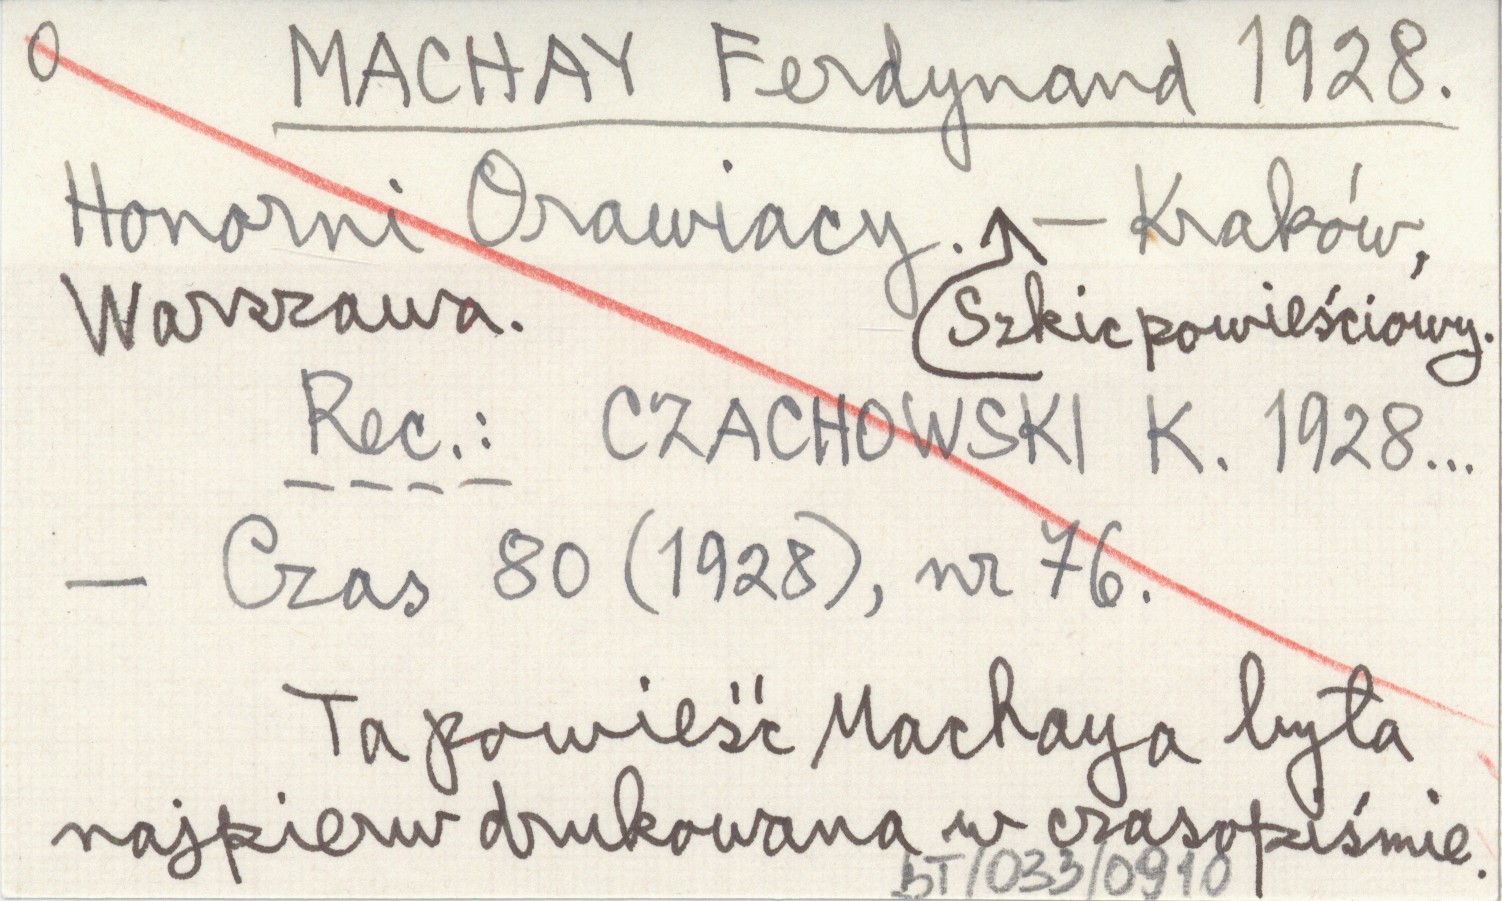 0 MACHAY Ferdynand 1928.
Honorni Orawiacy. — Kraków,
Warszawa. Szkic powieściowy.
Rec.: CZACHOWSKI K. 1928...
— Czas 80 (1928), nr 76.
Ta powieść Machaya była
najpierw drukowana w czasopiśmie.
bT/033/0910